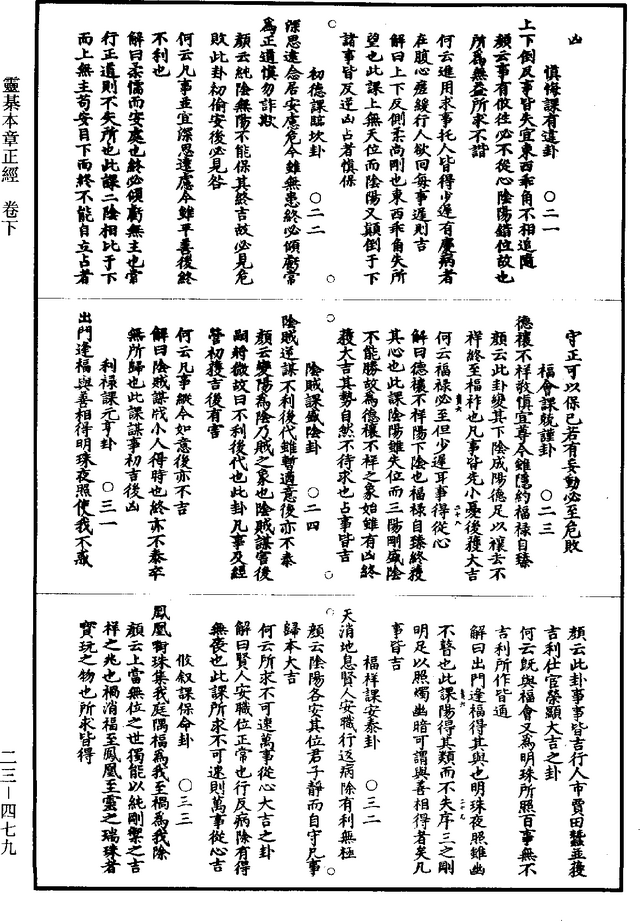 凶
慎悔課有違卦　〇二一
上下倒反事皆失宜東西乖角不相追隨
顏云事有攸往必不從心陰陽錯位故也
所為無益所求不諧
何云進用求事托人皆得少遲有慶病者
在腹心癥緩行人欲回每事遲則吉
解曰上下反側柔尚剛也東西乖角失所
望也此課上無天位而陰陽又顛倒于下
諸事皆反逆凶占者慎保
初德課臨坎卦　〇二二
深思遠念居安慮危今雖無患終必傾虧常
為正道慎勿詐欺
顏云純陰無陽不能保其終吉故必見危
敗此卦初偷安後必見咎
何云凡事並宜深思遠慮今雖平善後終
不利也
解曰柔懦而安處也終必傾虧無主也常
行正道則不失所也此課二陰相比于下
而上無主苟安目下而終不能自立占者
守正可以保己若有妄動必至危敗
福會課兢謹卦　〇二三
德禳不祥敬慎宜尊今雖隱約福祿自臻
顏云此卦變其下陰成陽德足以禳去不
祥終至福祚也凡事皆先小憂後獲大吉
何云福祿必至但少遲耳事得從心
解曰德禳不祥陽下陰也福祿自臻終獲
其心也此課陰陽雖失位而三陽剛盛陰
不能勝故為德禳不祥之象始雖有凶終
獲大吉其勢自然不待求也占事皆吉
陰賊課盛陰卦　〇二四
陰賊逆謀不利後代雖暫適意後亦不泰
顏云變陽為陰乃賊之象也陰賊謀害後
嗣將微故曰不利後代也此卦凡事及經
營初獲吉後有害
何云凡事縱今如意後亦不吉
解曰陰賊謀戕小人得時也終亦不泰卒
無所歸也此課謀事初吉後凶
利祿課元亨卦　〇三一
出門逢福與善相得明珠夜照使我不惑
顏云此卦事事皆吉行人市賈田蠶並獲
吉利仕官榮顯大吉之卦
何云既與福會又為明珠所照百事無不
吉利所作皆通
解曰出門逢福得其與也明珠夜照雖幽
不瞀也此課陽得其類而不失序三之剛
明足以照燭幽暗可謂與善相得者矣凡
事皆吉
福祥課安泰卦　〇三二
天消地息賢人安職行返病除有利無極
顏云陰陽各安其位君子靜而自守凡事
歸本大吉
何云所求不可速萬事從心大吉之卦
解曰賢人安職位正常也行反病除有得
無喪也此課所求不可速則萬事從心吉
攸叙課保命卦　〇三三
鳳凰銜珠集我庭隅福為我至禍為我除
顏云上當無位之世獨能以純剛禦之吉
祥之兆也禍消福至鳳凰至靈之瑞珠者
寳玩之物也所求皆得
靈棊本章正經　卷下
二三－四七九